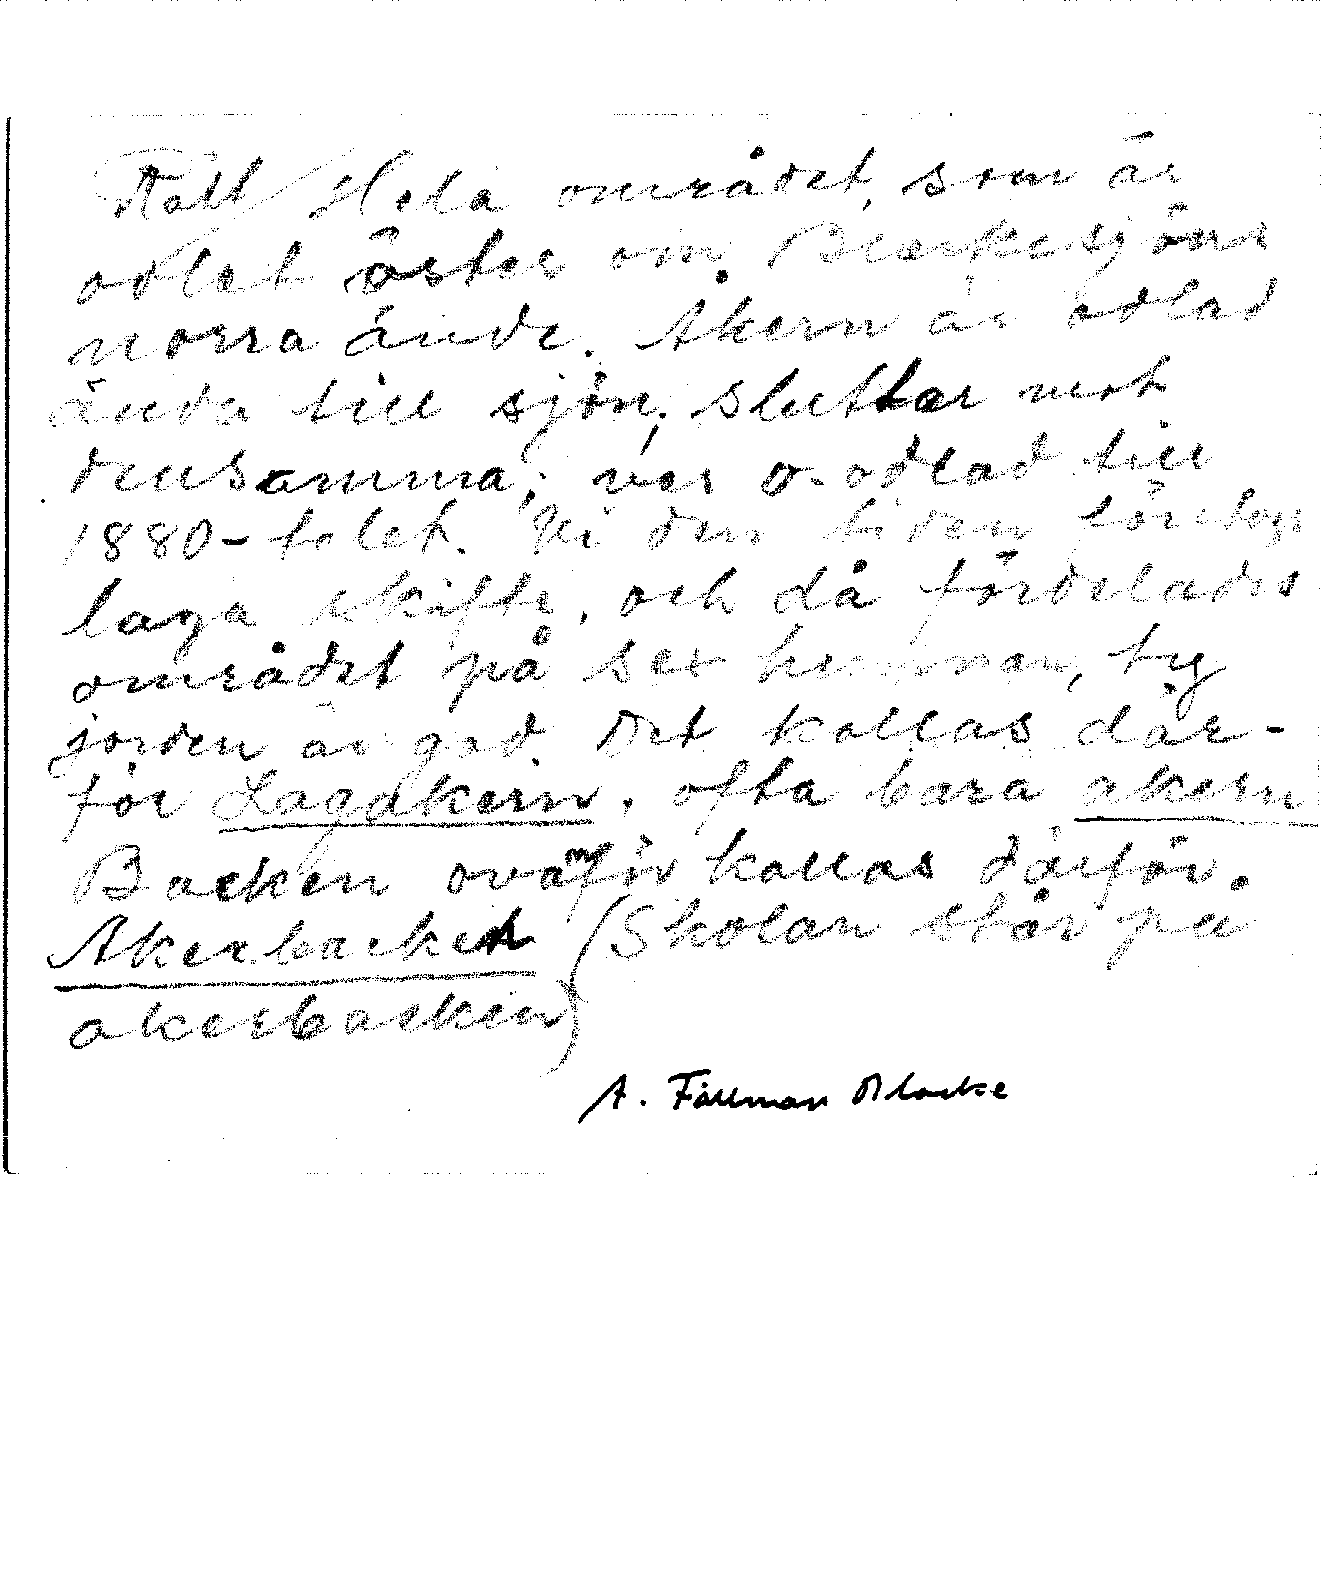 Hela området, som är
odlat öster om Blackesjöns
norra ände. Åkern är odlad
ända till sjön, sluttar mot
densamma; var o-odlad till
1880-talet. Vi den tiden företogs
laga skifte, och då fördelades
området på sex hemman, ty
jorden är god. Det kallas där-
för Lagåkern, ofta bara akern
Backen ovanför kallas därför.
Akerbacken (Skolan står på
akerbacken)
A. Fällman Blacke